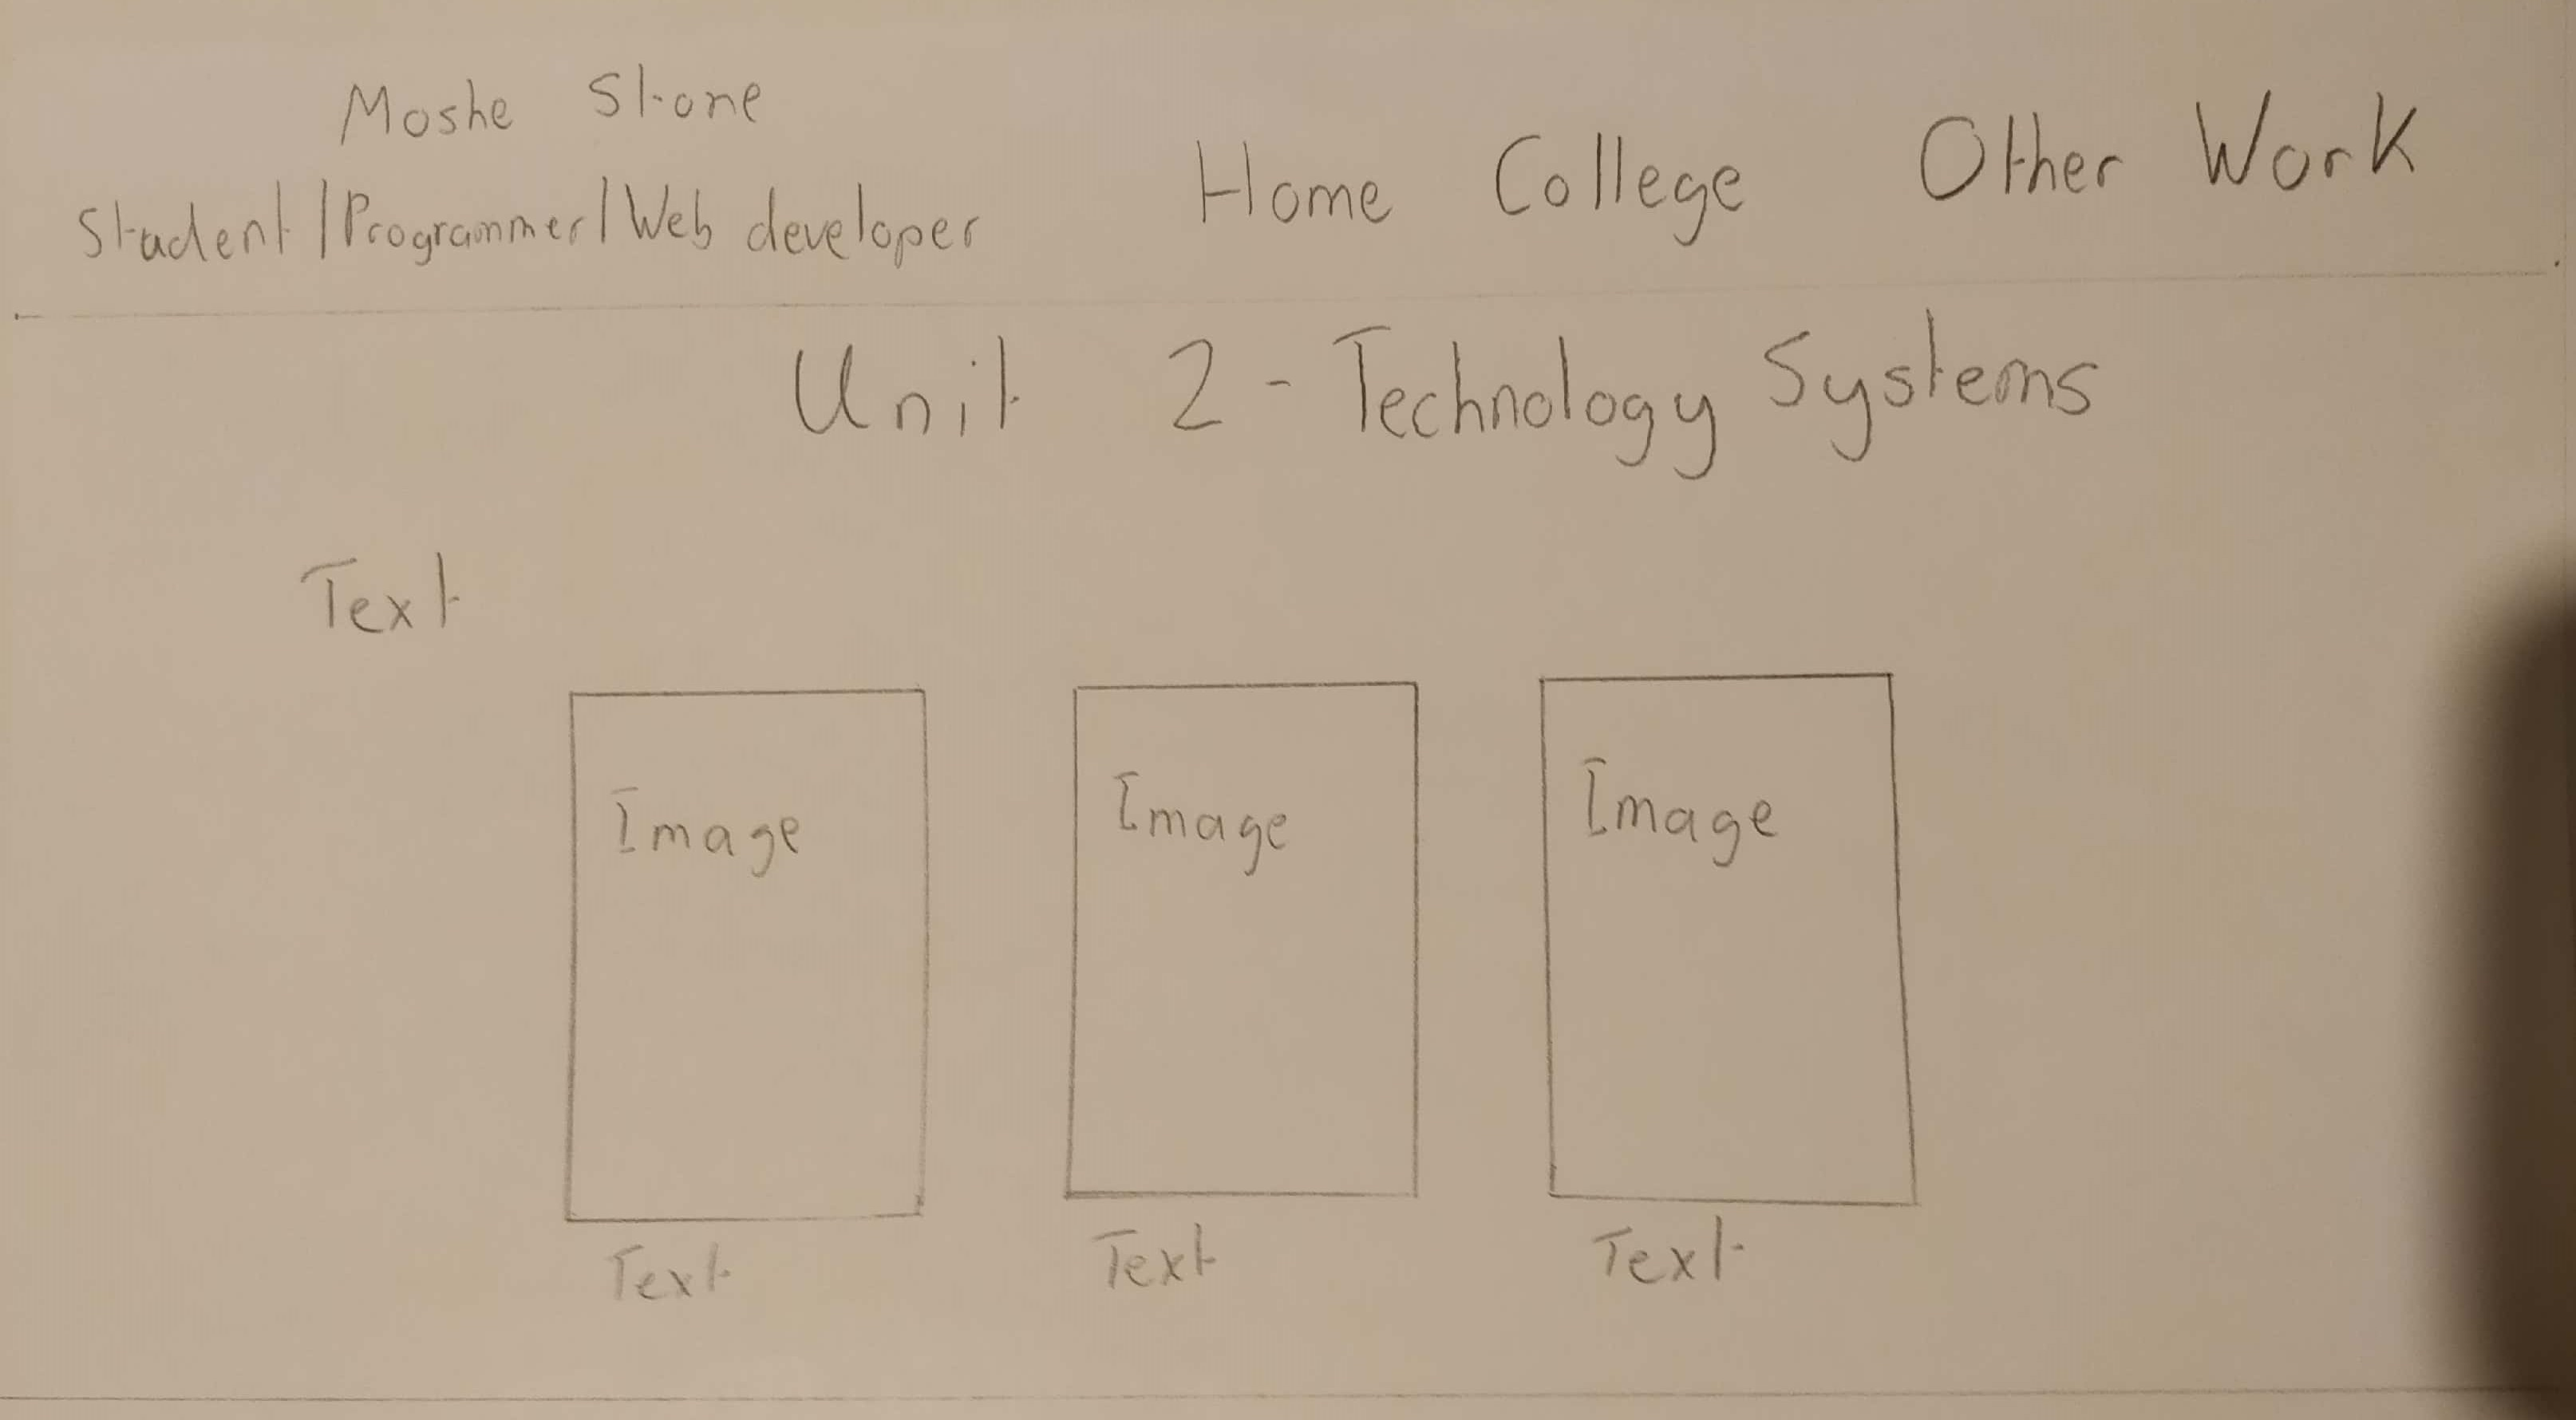 Moshe Stone
Student/Programmer/Web developer
Home College Other Work
Unit 2 - Technology Systems
Text
Image Image Image
Text Text Text